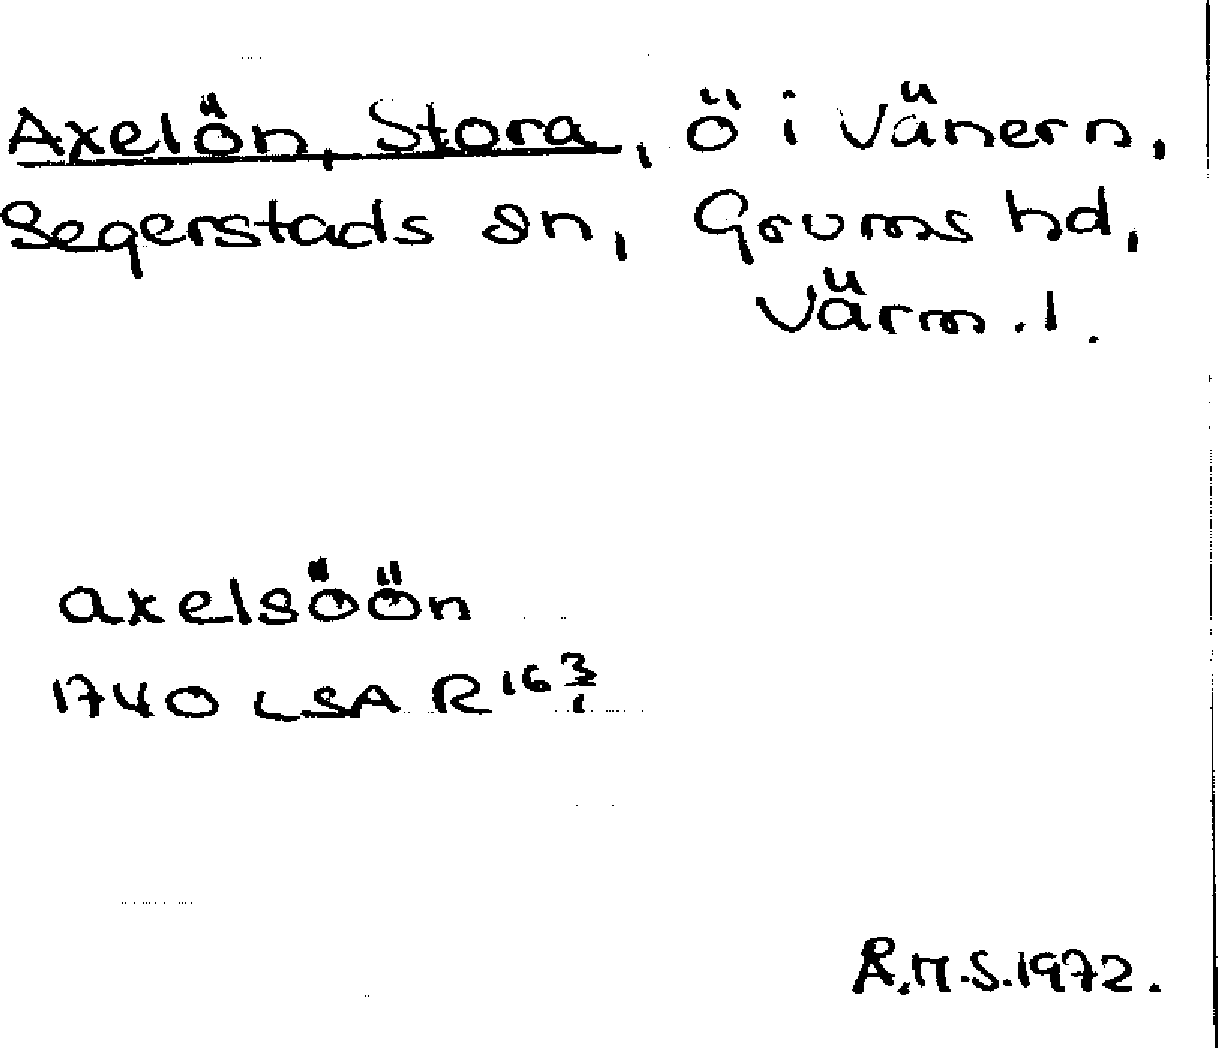 Axelön, Stora, ö i Vänern,
Segerstads sn, Grums hd,
Värm. l.
axelsöön
1740 LSA R 16 3/1
R.M.S. 1972.